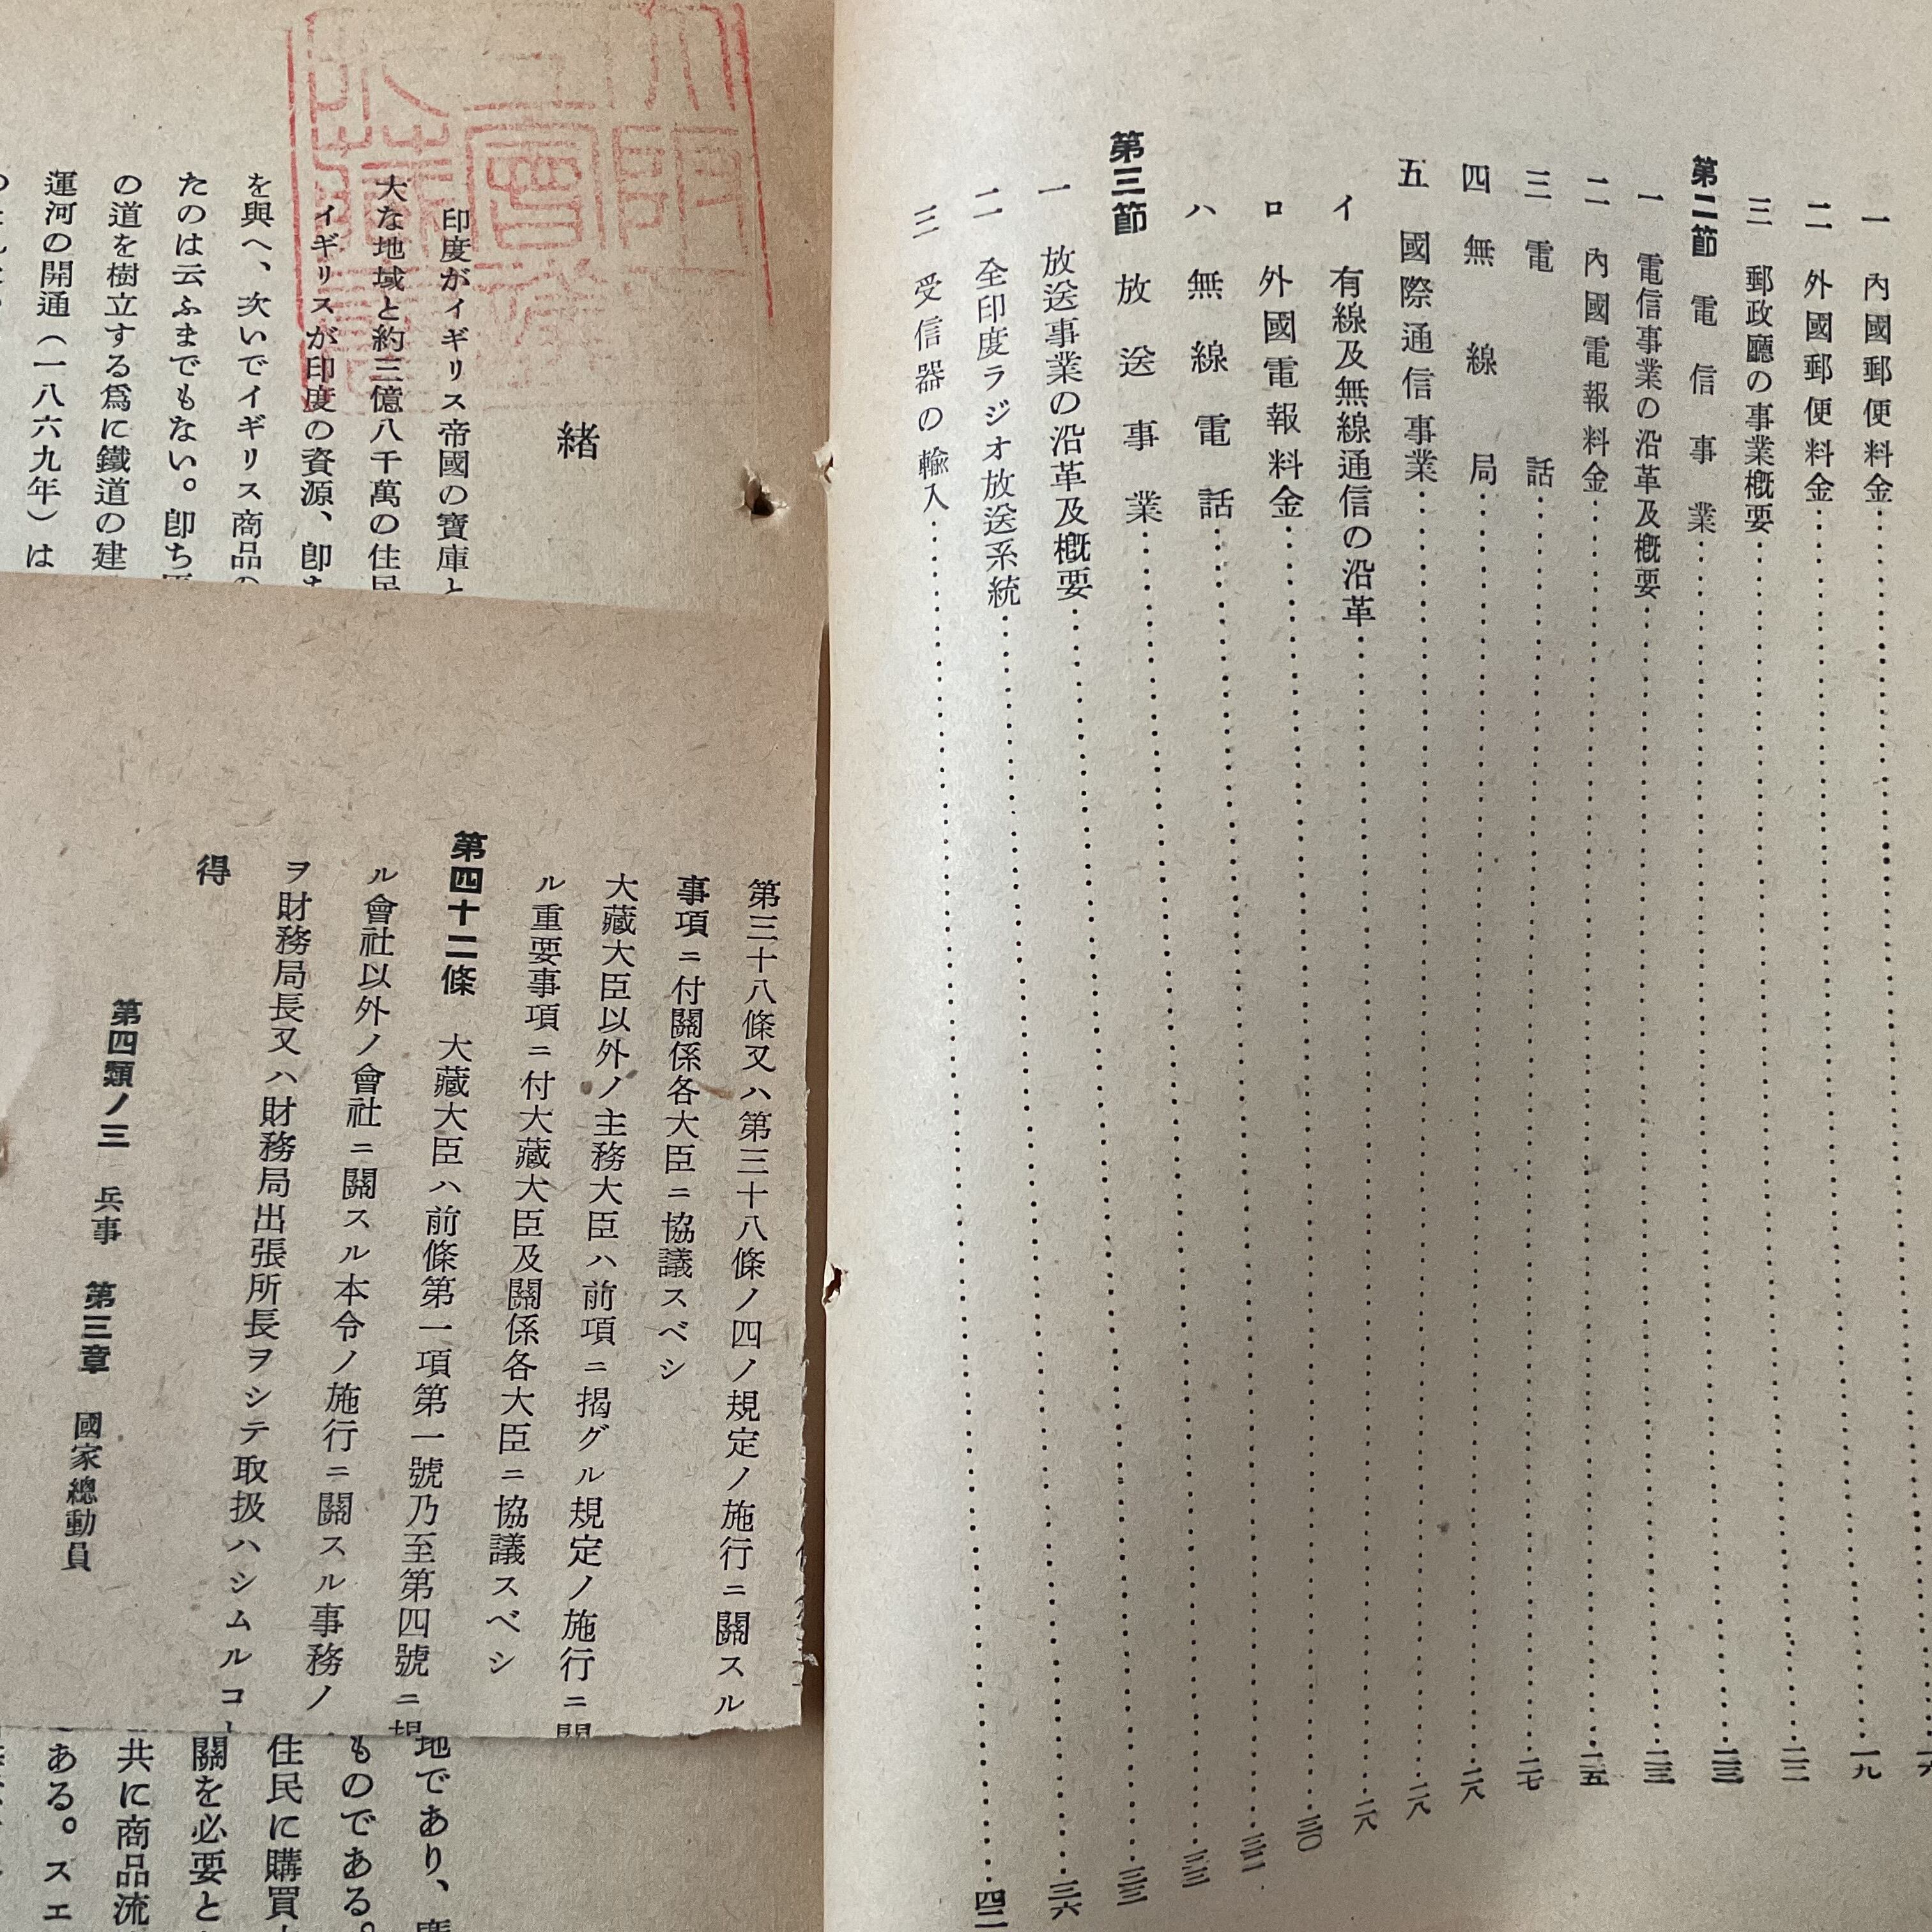 一 內國郵便料金……一六
二 外國郵便料金……一九
三 郵政廳の事業槪要……二二
第二節 電信事業……二三
一 電信事業の沿革及槪要……二三
二 內國電報料金……二五
三 電話……二七
四 無線局……二八
五 國際通信事業……二八
イ 有線及無線通信の沿革……二八
ロ 外國電報料金……三〇
ハ 無線電話……三二
第三節 放送事業……三三
一 放送事業の沿革及槪要……三三
二 全印度ラジオ放送系統……三六
三 受信器の輸入……四二
緖
印度がイギリス帝國の寶庫と
大な地域と約三億八千萬の住民
イギリスが印度の資源、卽ち
を與へ、次いでイギリス商品の
たのは云ふまでもない。卽ち
の道を樹立する爲に鐵道の建
運河の開通(一八六九年)は
第三十八條又ハ第三十八條ノ四ノ規定ノ施行ニ關スル
事項ニ付關係各大臣ニ協議スベシ
大藏大臣以外ノ主務大臣ハ前項ニ揭グル規定ノ施行ニ關
ル重要事項ニ付大藏大臣及關係各大臣ニ協議スベシ
第四十二條 大藏大臣ハ前條第一項第一號乃至第四號ニ揭
ル會社以外ノ會社ニ關スル本令ノ施行ニ關スル事務ノ
ヲ財務局長又ハ財務局出張所長ヲシテ取扱ハシムルコ
得
第四類ノ三 兵事 第三章 國家總動員
地であり、
ものである。
住民に購買
關を必要と
共に商品流
ある。スエ